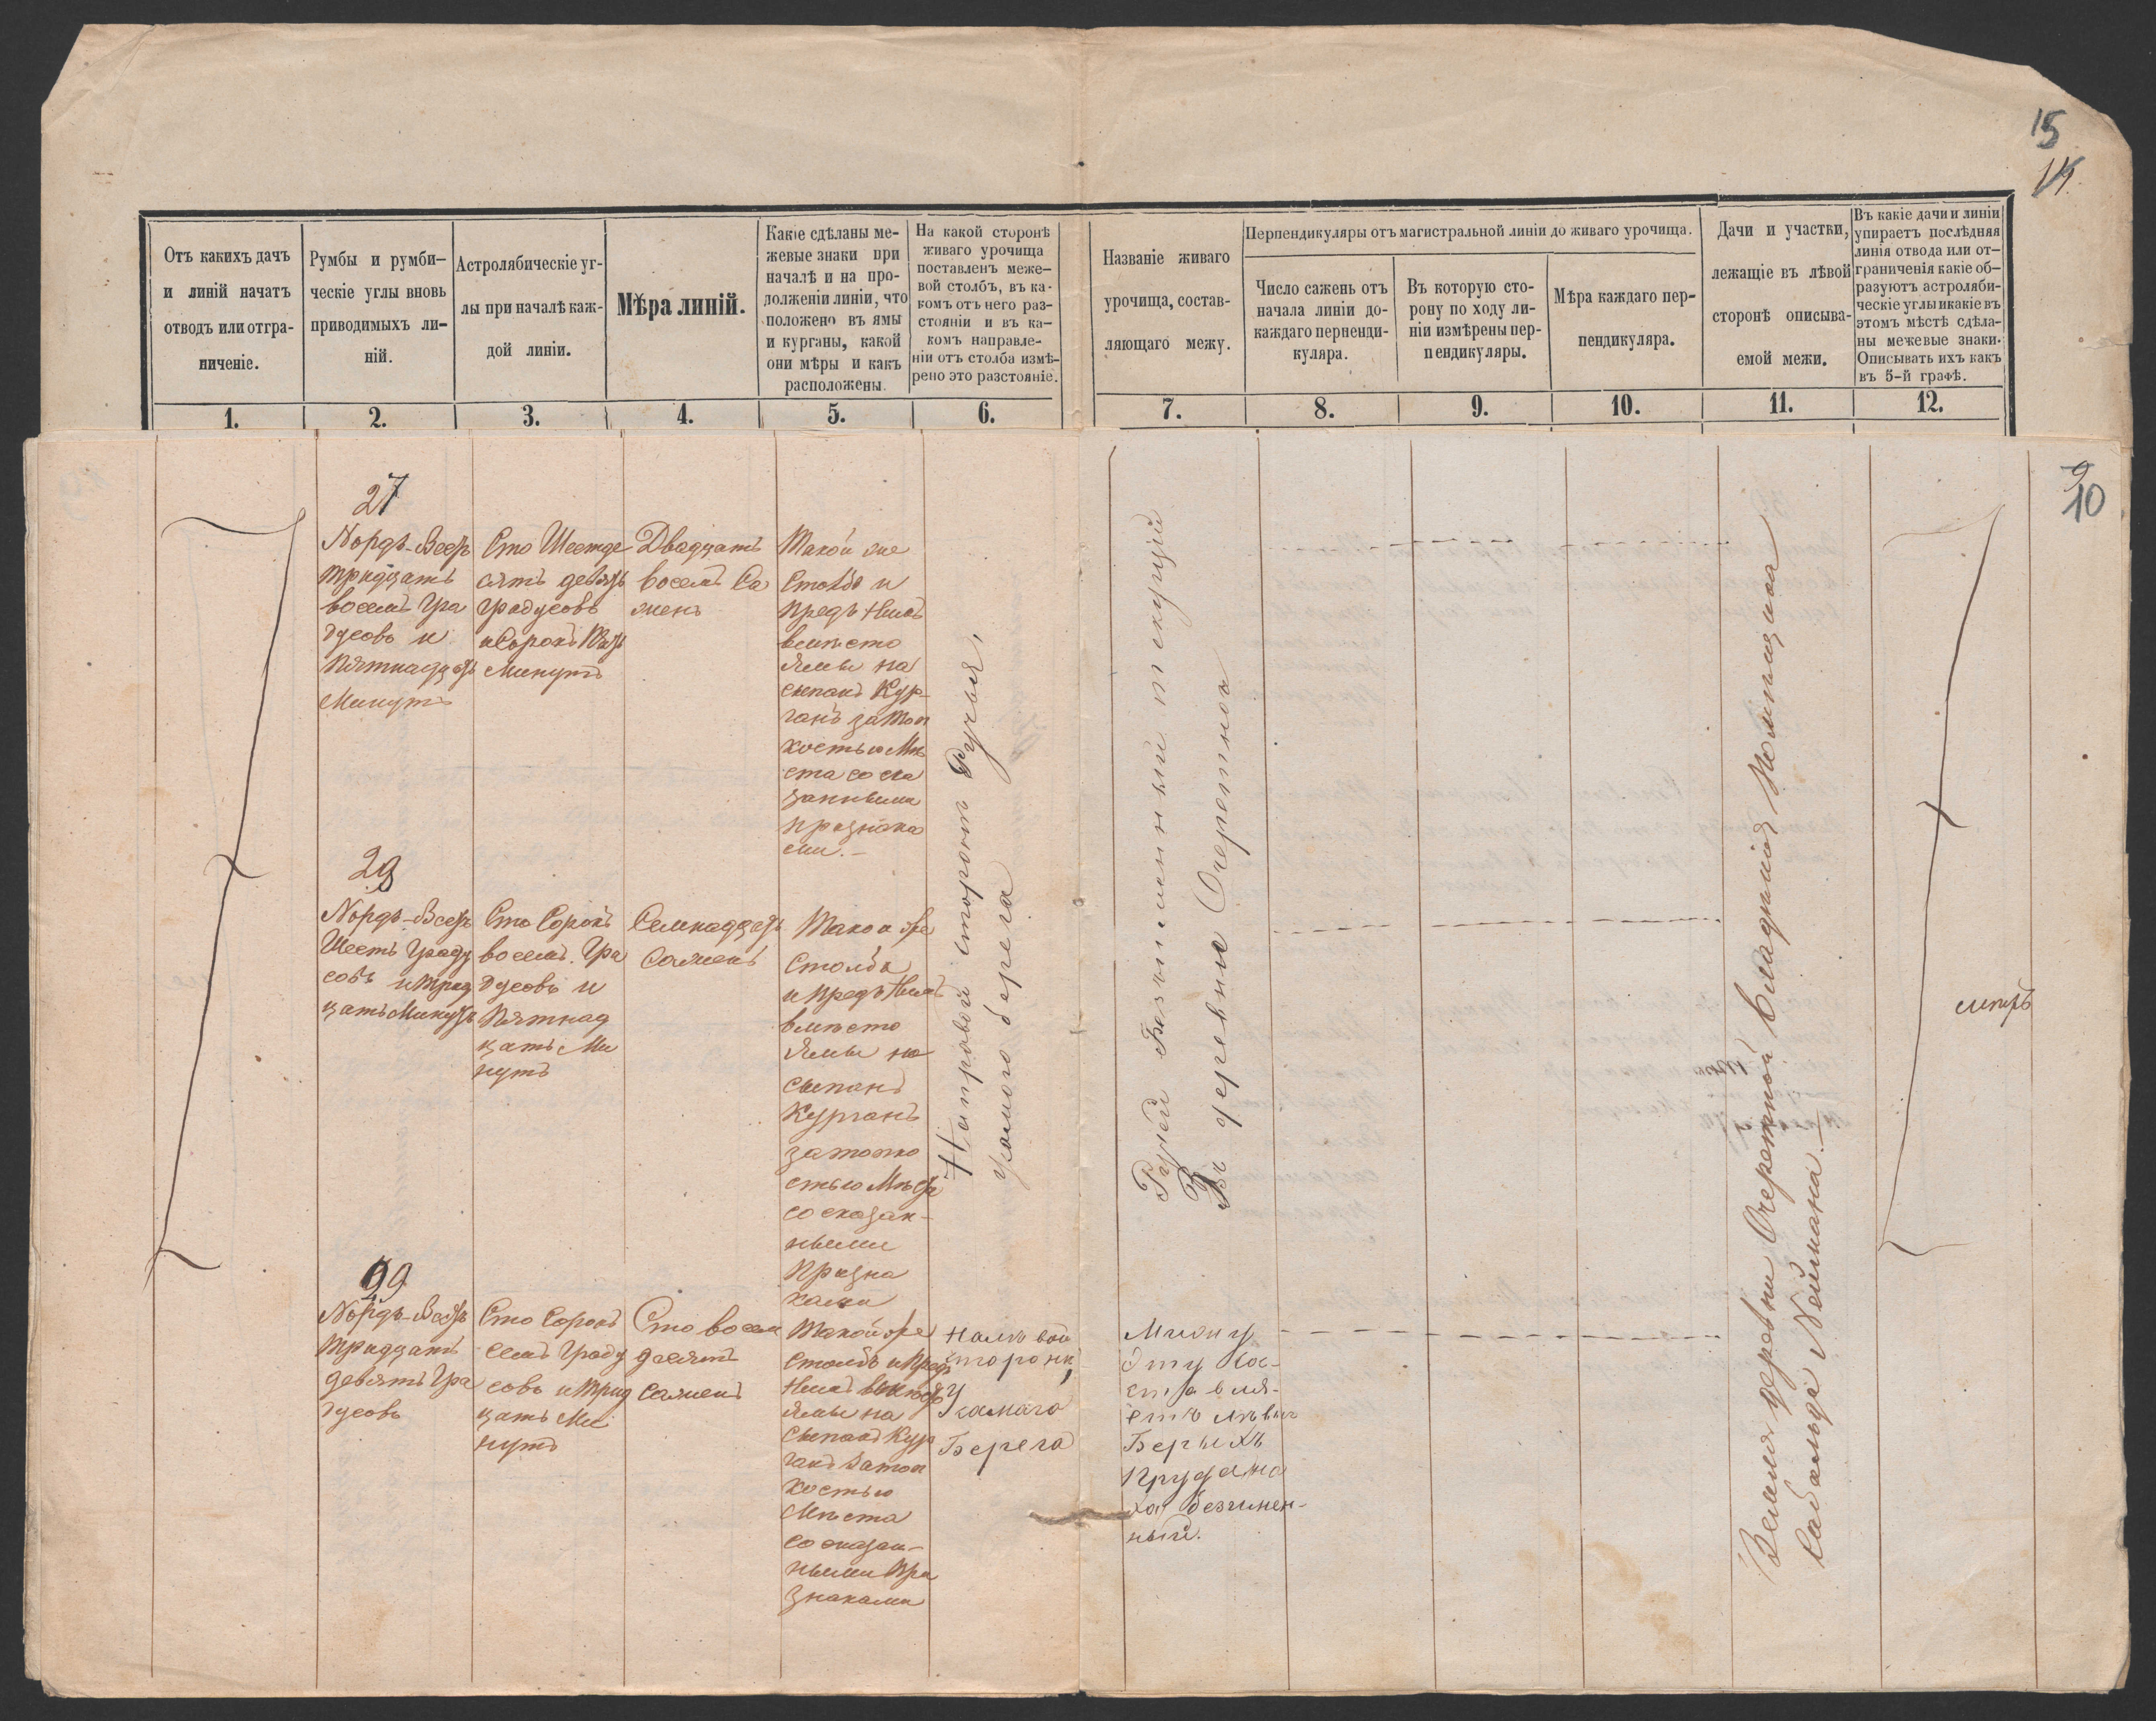 15
14.
Отъ какихъ дачъ
и линій начатъ
отводъ или отгра-
ниченіе.
Румбы и румби-
ческіе углы вновь
приводимыхъ ли-
ній.
Астролябическіе уг-
лы при началѣ каж-
дой линіи.
Мѣра линій.
Какіе сдѣланы ме-
жевые знаки при
началѣ и на про-
долженіи линіи, что
положено въ ямы
и курганы, какой
они мѣры и какъ
расположены.
На какой сторонѣ
живаго урочища
поставленъ меже-
вой столбъ, въ ка-
комъ отъ него раз-
стояніи и въ ка-
комъ направле-
ніи отъ столба измѣ-
рено это разстояніе.
Названіе живаго
урочища, состав-
ляющаго межу.
Перпендикуляры отъ магистральной линіи до живаго урочища.
Число сажень отъ
начала линіи до-
каждаго перпенди-
куляра.
Въ которую сто-
рону по ходу ли-
ніи измѣрены пер-
пендикуляры.
Мѣра каждаго пер-
пендикуляра.
Дачи и участки,
лежащіе въ лѣвой
сторонѣ описыва-
емой межи.
Въ какіе дачи и линіи
упираетъ послѣдняя
линія отвода или от-
граниченія какіе об-
разуютъ астроляби-
ческіе углы и какіе въ
этомъ мѣстѣ сдѣла-
ны межевые знаки.
Описывать ихъ какъ
въ 5-й графѣ.
1.
2.
3.
4.
5.
6.
7.
8.
9.
10.
11.
12.
9
10
27
Nордъ-Вестъ
тридцать
восемь Гра
дусовъ и
Пятнадцать
Минутъ
Сто Шестьде
сятъ девять
градусовъ
и Сорокъ Пять
Минутъ
Двадцать
восемь Са
женъ
Такой же
Столбъ и
предъ Нимъ
вмѣсто
Ямы на
сыпанъ Кур-
ганъ за топ
костью Мѣ
ста со ска
занными
признака
ми.-
28
Nордъ-Вестъ
Шесть Граду
совъ и Трид
цать Минутъ
Сто Сорокъ
восемь Гра
дусовъ и
Пятнад
цать Ми
нутъ
Семнадцать
Саженъ
Такой же
Столбъ
и предъ Нимъ
вмѣсто
Ямы на
сыпанъ
Курганъ
за топко
стью Мѣста
со сказан-
ными
Призна
ками
29
Nордъ-Вестъ
Тридцать
девять Гра
дусовъ
Сто Сорокъ
семь Граду
совъ и Трид
цать Ми
нутъ
Сто восем
десятъ
Саженъ
Такой же
столбъ и предъ
Нимъ вмѣсто
Ямы на
сыпанъ Кур
ганъ за топ
костью
Мѣста
со сказан-
ными При
знаками
На правой сторонѣ Ручья,
у самого берега
На лѣвой
сторонѣ,
У самаго
Берега
Ручей безъименный текущій
Въ деревни Очеретной
Линію
Эту Со-
ставля-
етъ лѣвый
Берегъ
Пруда
безъимен-
ный.
Земля деревни Очеретной Владѣнія Помѣщика
Нейманa.-